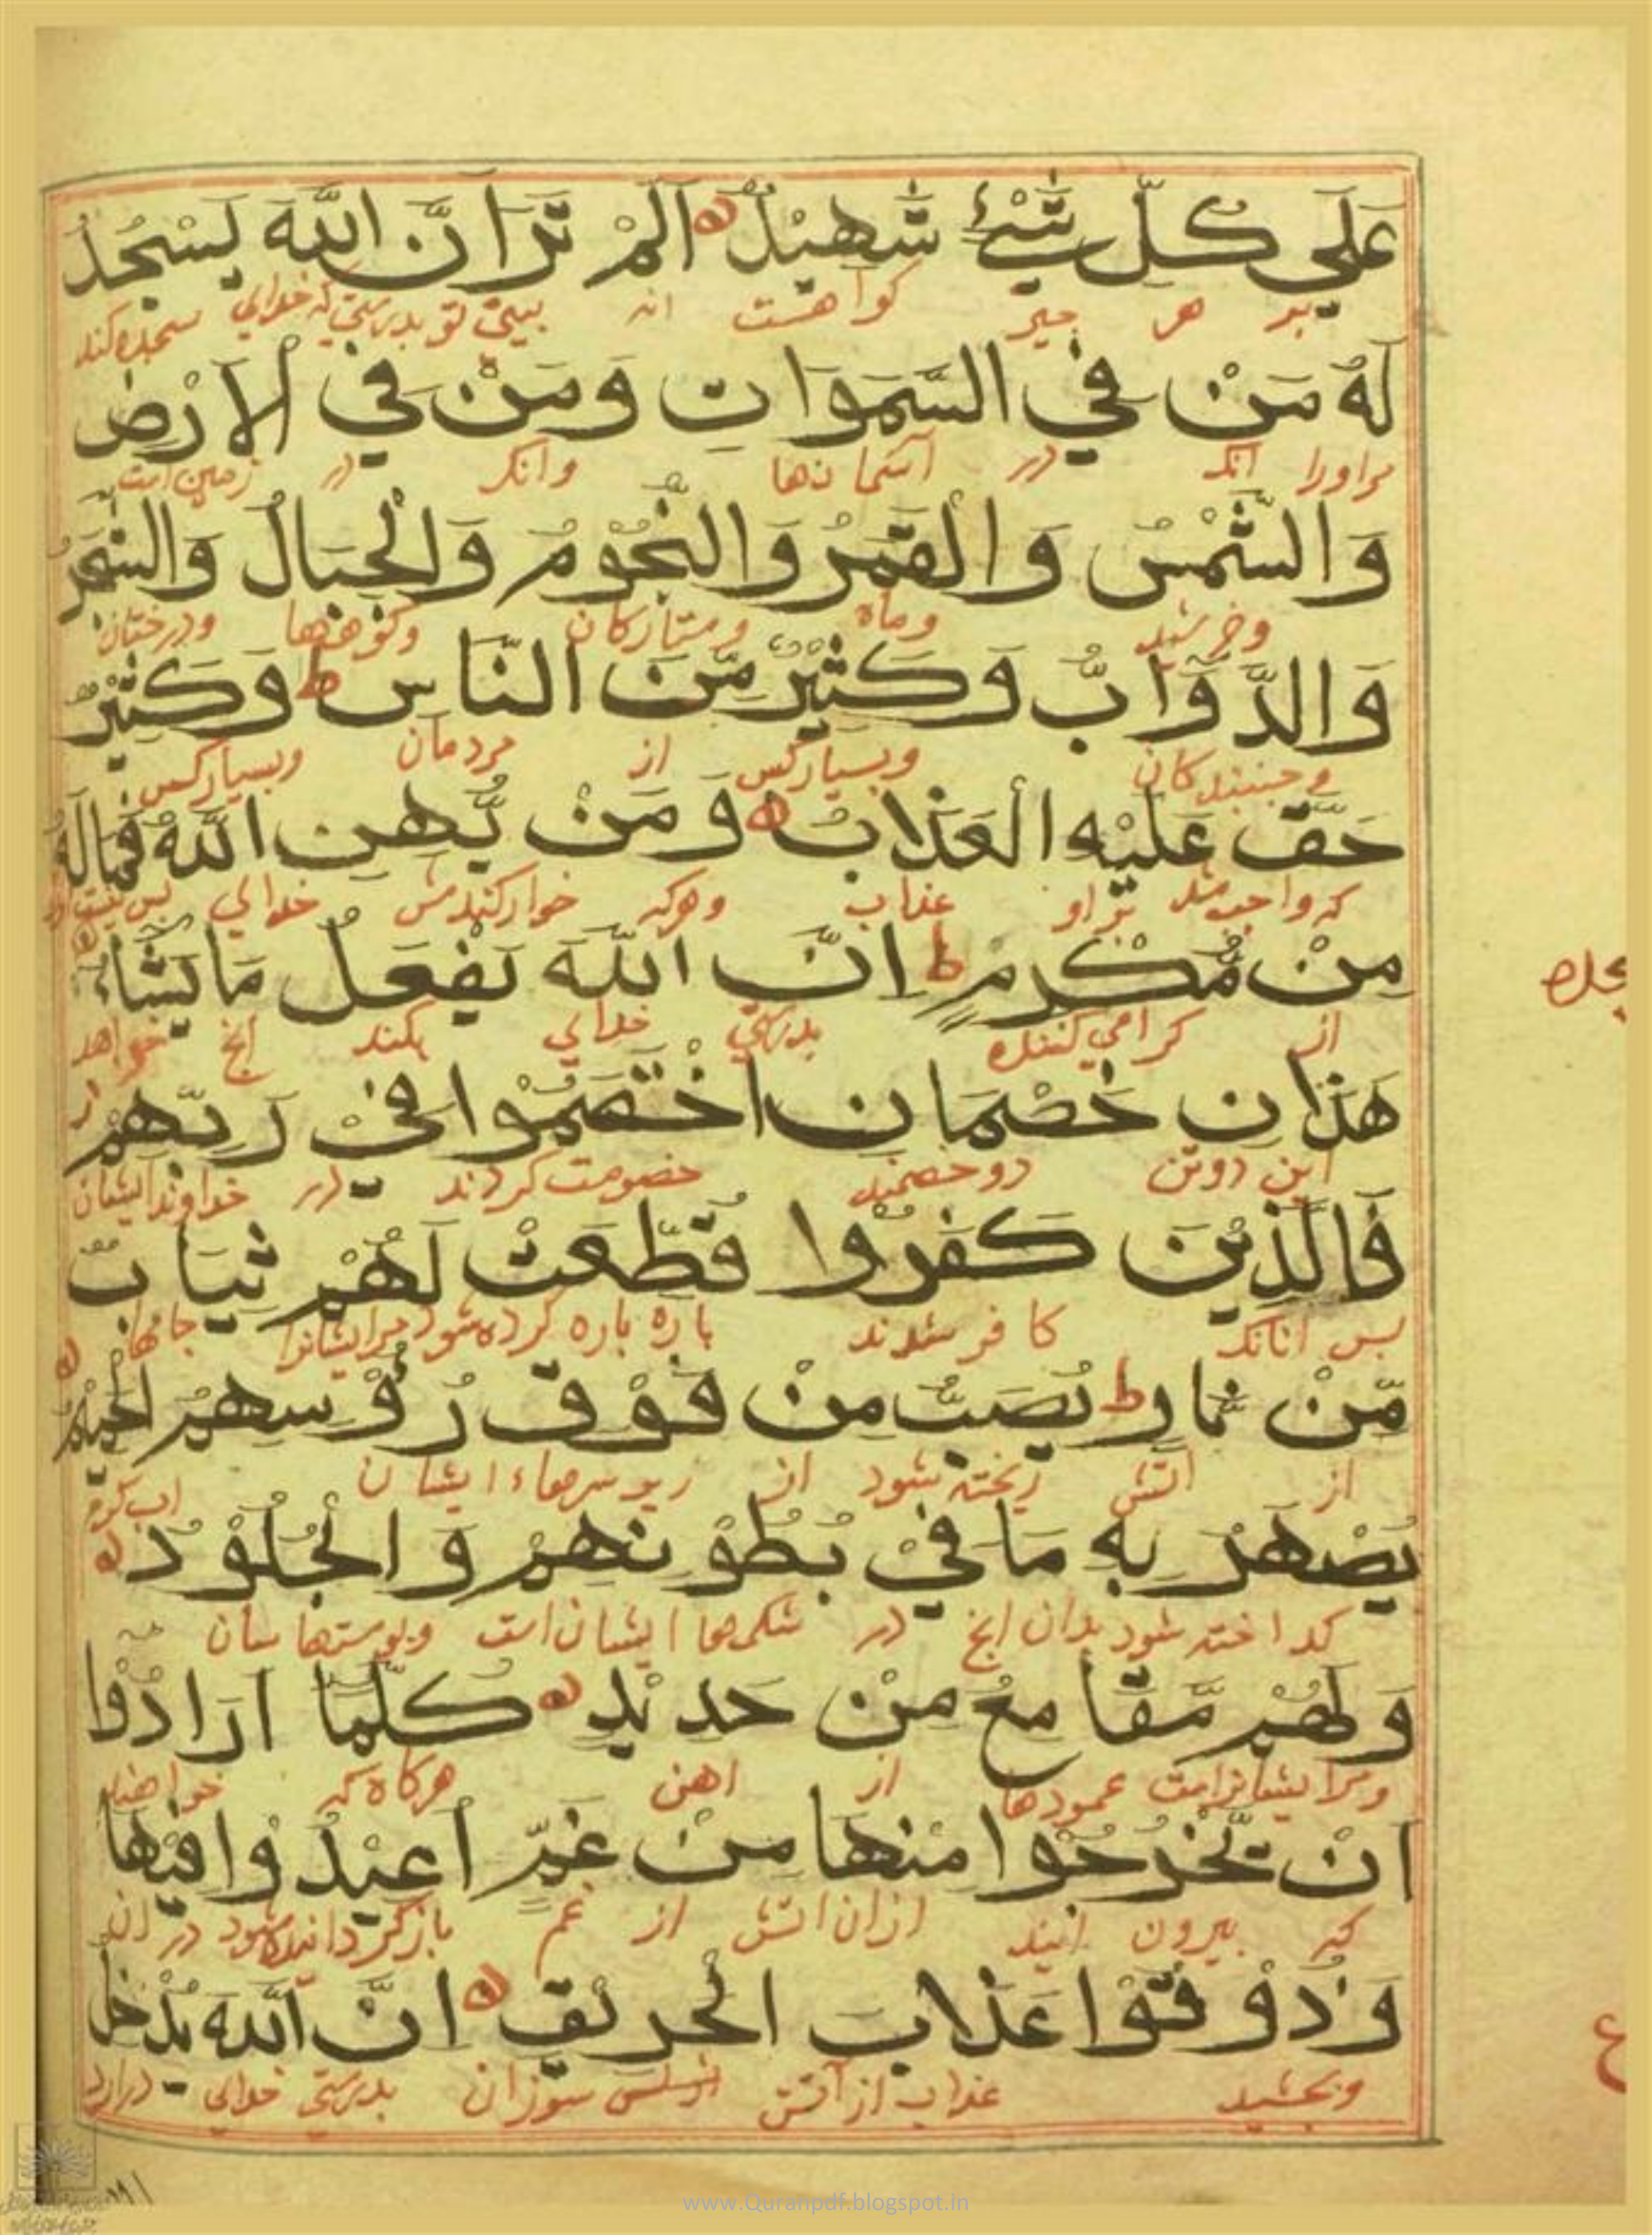 عَلٰي كُلِّ شَيْءٍ شَهِيْدٌ اَلَمْ تَرَ اَنَّ اللّٰهَ يَسْجُدُ
بر هر چیز کواهست انه بینی تو بدرستی که خدای سجده کند
لَهٗ مَنْ فِي السَّمَوَاتِ وَمَنْ فِي الْاَرْضِ
مراورا آنک در آسمانها وانک در زمین است
وَالشَّمْسُ وَالْقَمَرُ وَالنُّجُوْمُ وَالْجِبَالُ وَالشَّجَرُ
وخرشید وماه وستارکان وکوهها ودرختان
وَالدَّوَآبُّ وَكَثِيْرٌ مِّنَ النَّاسِ ط وَكَثِيْرٌ
وجنبندکان وبسیارکس از مردمان وبسیارکس
حَقَّ عَلَيْهِ الْعَذَابُ وَمَنْ يُّهِنِ اللّٰهُ فَمَا لَهٗ
که واجب شد براو عذاب وهرکه خوارکندش خدای پس نیست
مِنْ مُّكْرِمٍ ط اِنَّ اللّٰهَ يَفْعَلُ مَا يَشَآءُ
از کرامی کننده بدرستی خدای بکند انچ خواهد
هَذَانِ خَصْمَانِ اخْتَصَمُوْا فِيْ رَبِّهِمْ
این دوتن دو خصمند خصومت کردند در خداوند ایشان
فَالَّذِيْنَ كَفَرُوْا قُطِّعَتْ لَهُمْ ثِيَابٌ
پس انانک کافر شدند پاره پاره کرده شود مرایشانرا جامها
مِّنْ نَّارٍ ط يُصَبُّ مِنْ فَوْقِ رُءُوْسِهِمُ الْحَمِيْمُ
از اتش ریخته شود از زبر سرهاء ایشان اب کرم
يُصْهَرُ بِهٖ مَا فِيْ بُطُوْنِهِمْ وَالْجُلُوْدُ
کداخته شود بدان انچ در شکمها ایشان است وپوستهاشان
وَلَهُمْ مَّقَامِعُ مِنْ حَدِيْدٍ كُلَّمَا اَرَادُوْا
ومرایشانراست عمودها از اهن هرکاه که خواهند
اَنْ يَّخْرُجُوْا مِنْهَا مِنْ غَمٍّ اُعِيْدُوْا فِيْهَا
که بیرون ایند ازان اتش از غم بازکردانیده شود در ان
وَذُوْقُوْا عَذَابَ الْحَرِيْقِ اِنَّ اللّٰهَ يُدْخِلُ
وبچشید عذاب از آتش سوزان بدرستی خدای درارد
ع
www.Quranpdf.blogspot.in